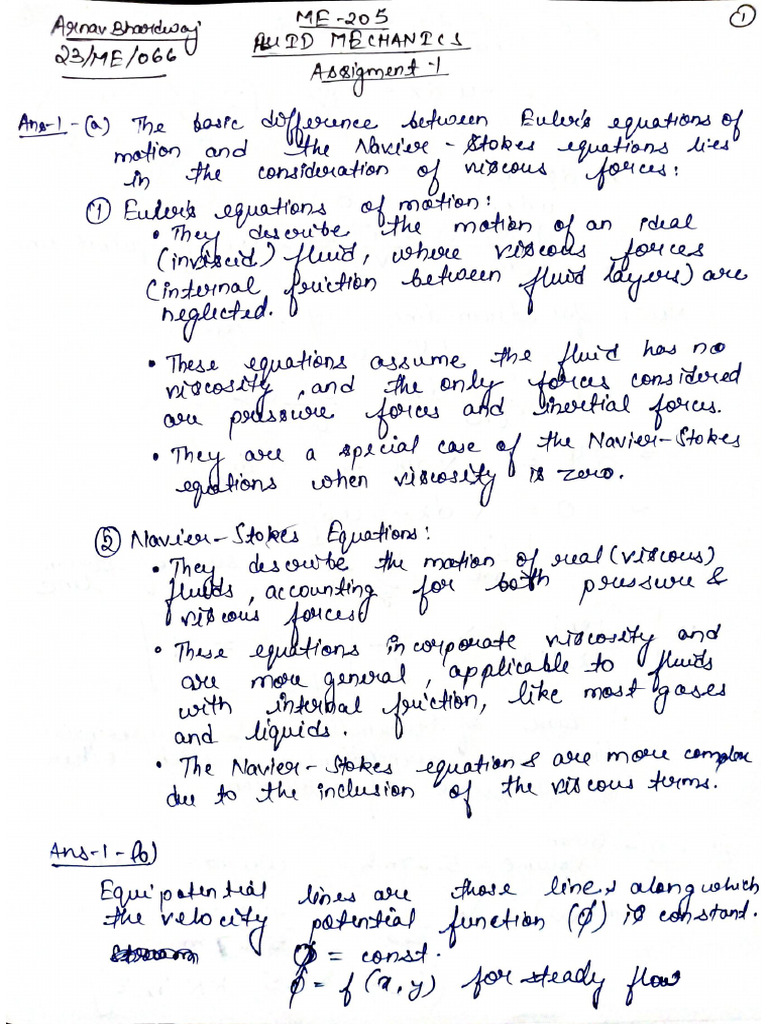 Arnav Bhardwaj
23/ME/066
ME-205
FLUID MECHANICS
Assigment-1
1
Ans-1-(a) The basic difference between Euler's equations of
motion and the Navier-Stokes equations lies
in the consideration of viscous forces:
① Euler's equations of motion:
• They describe the motion of an ideal
(inviscid) fluid, where viscous forces
(internal friction between fluid layers) are
neglected.
• These equations assume the fluid has no
viscosity, and the only forces considered
are pressure forces and inertial forces.
• They are a special case of the Navier-Stokes
equations when viscosity is zero.
② Navier-Stokes Equations:
• They describe the motion of real (viscous)
fluids, accounting for both pressure &
viscous forces
• These equations incorporate viscosity and
are more general, applicable to fluids
with internal friction, like most gases
and liquids.
• The Navier-Stokes equations are more complex
due to the inclusion of the viscous terms.
Ans-1-(b)
Equipotential lines are those lines along which
the velocity potential function (ϕ) is constant.
ϕ = const.
ϕ = f(x,y) for steady flow